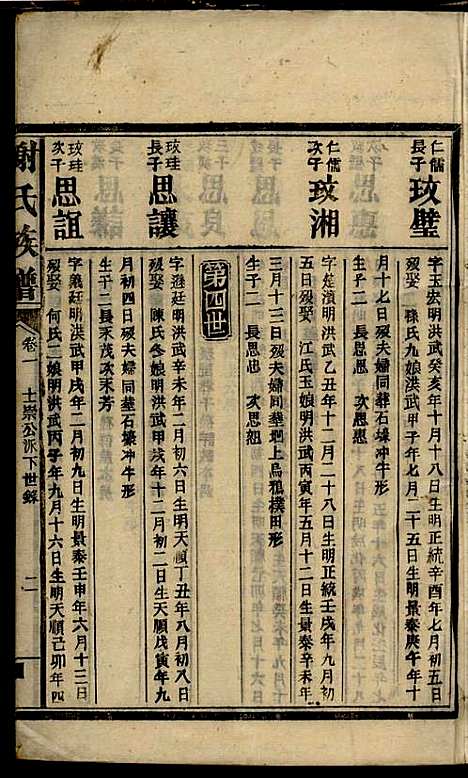 仁儒長子
玫璧
字玉宏明洪武癸亥年十月十八日生明正統辛酉年七月初五日
歿娶 孫氏九娘明洪武甲子年七月二十五日生明景泰庚午年十
月十七日歿夫婦同葬石壕冲牛形
生子二 長思愚 次思惠
仁儒次子
玫湘
字楚濱明洪武乙丑年十二月二十八日生明正統壬戌年九月初
五日歿娶 江氏玉娘明洪武丙寅年五月十二日生景泰辛未年
三月十三日歿夫婦同葬垇上烏鴉樸田形
生子二 長思忠 次思
第四世
玫珪長子
思讓
字遜廷明洪武辛未年二月初六日生明天順丁丑年八月初八日
歿娶 陳氏冬娘明洪武甲戌年十二月初二日生明天順戊寅年九
月初四日歿夫婦同葬石壕冲牛形
生子二長永茂次永芳
玫珪次子
思誼
字義廷明洪武甲戌年二月初九日生明景泰壬申年六月十三日
歿娶 何氏二娘明洪武丙子年九月十六日生明天順己卯年四
謝氏族譜
卷一
士崇公派下世錄
二